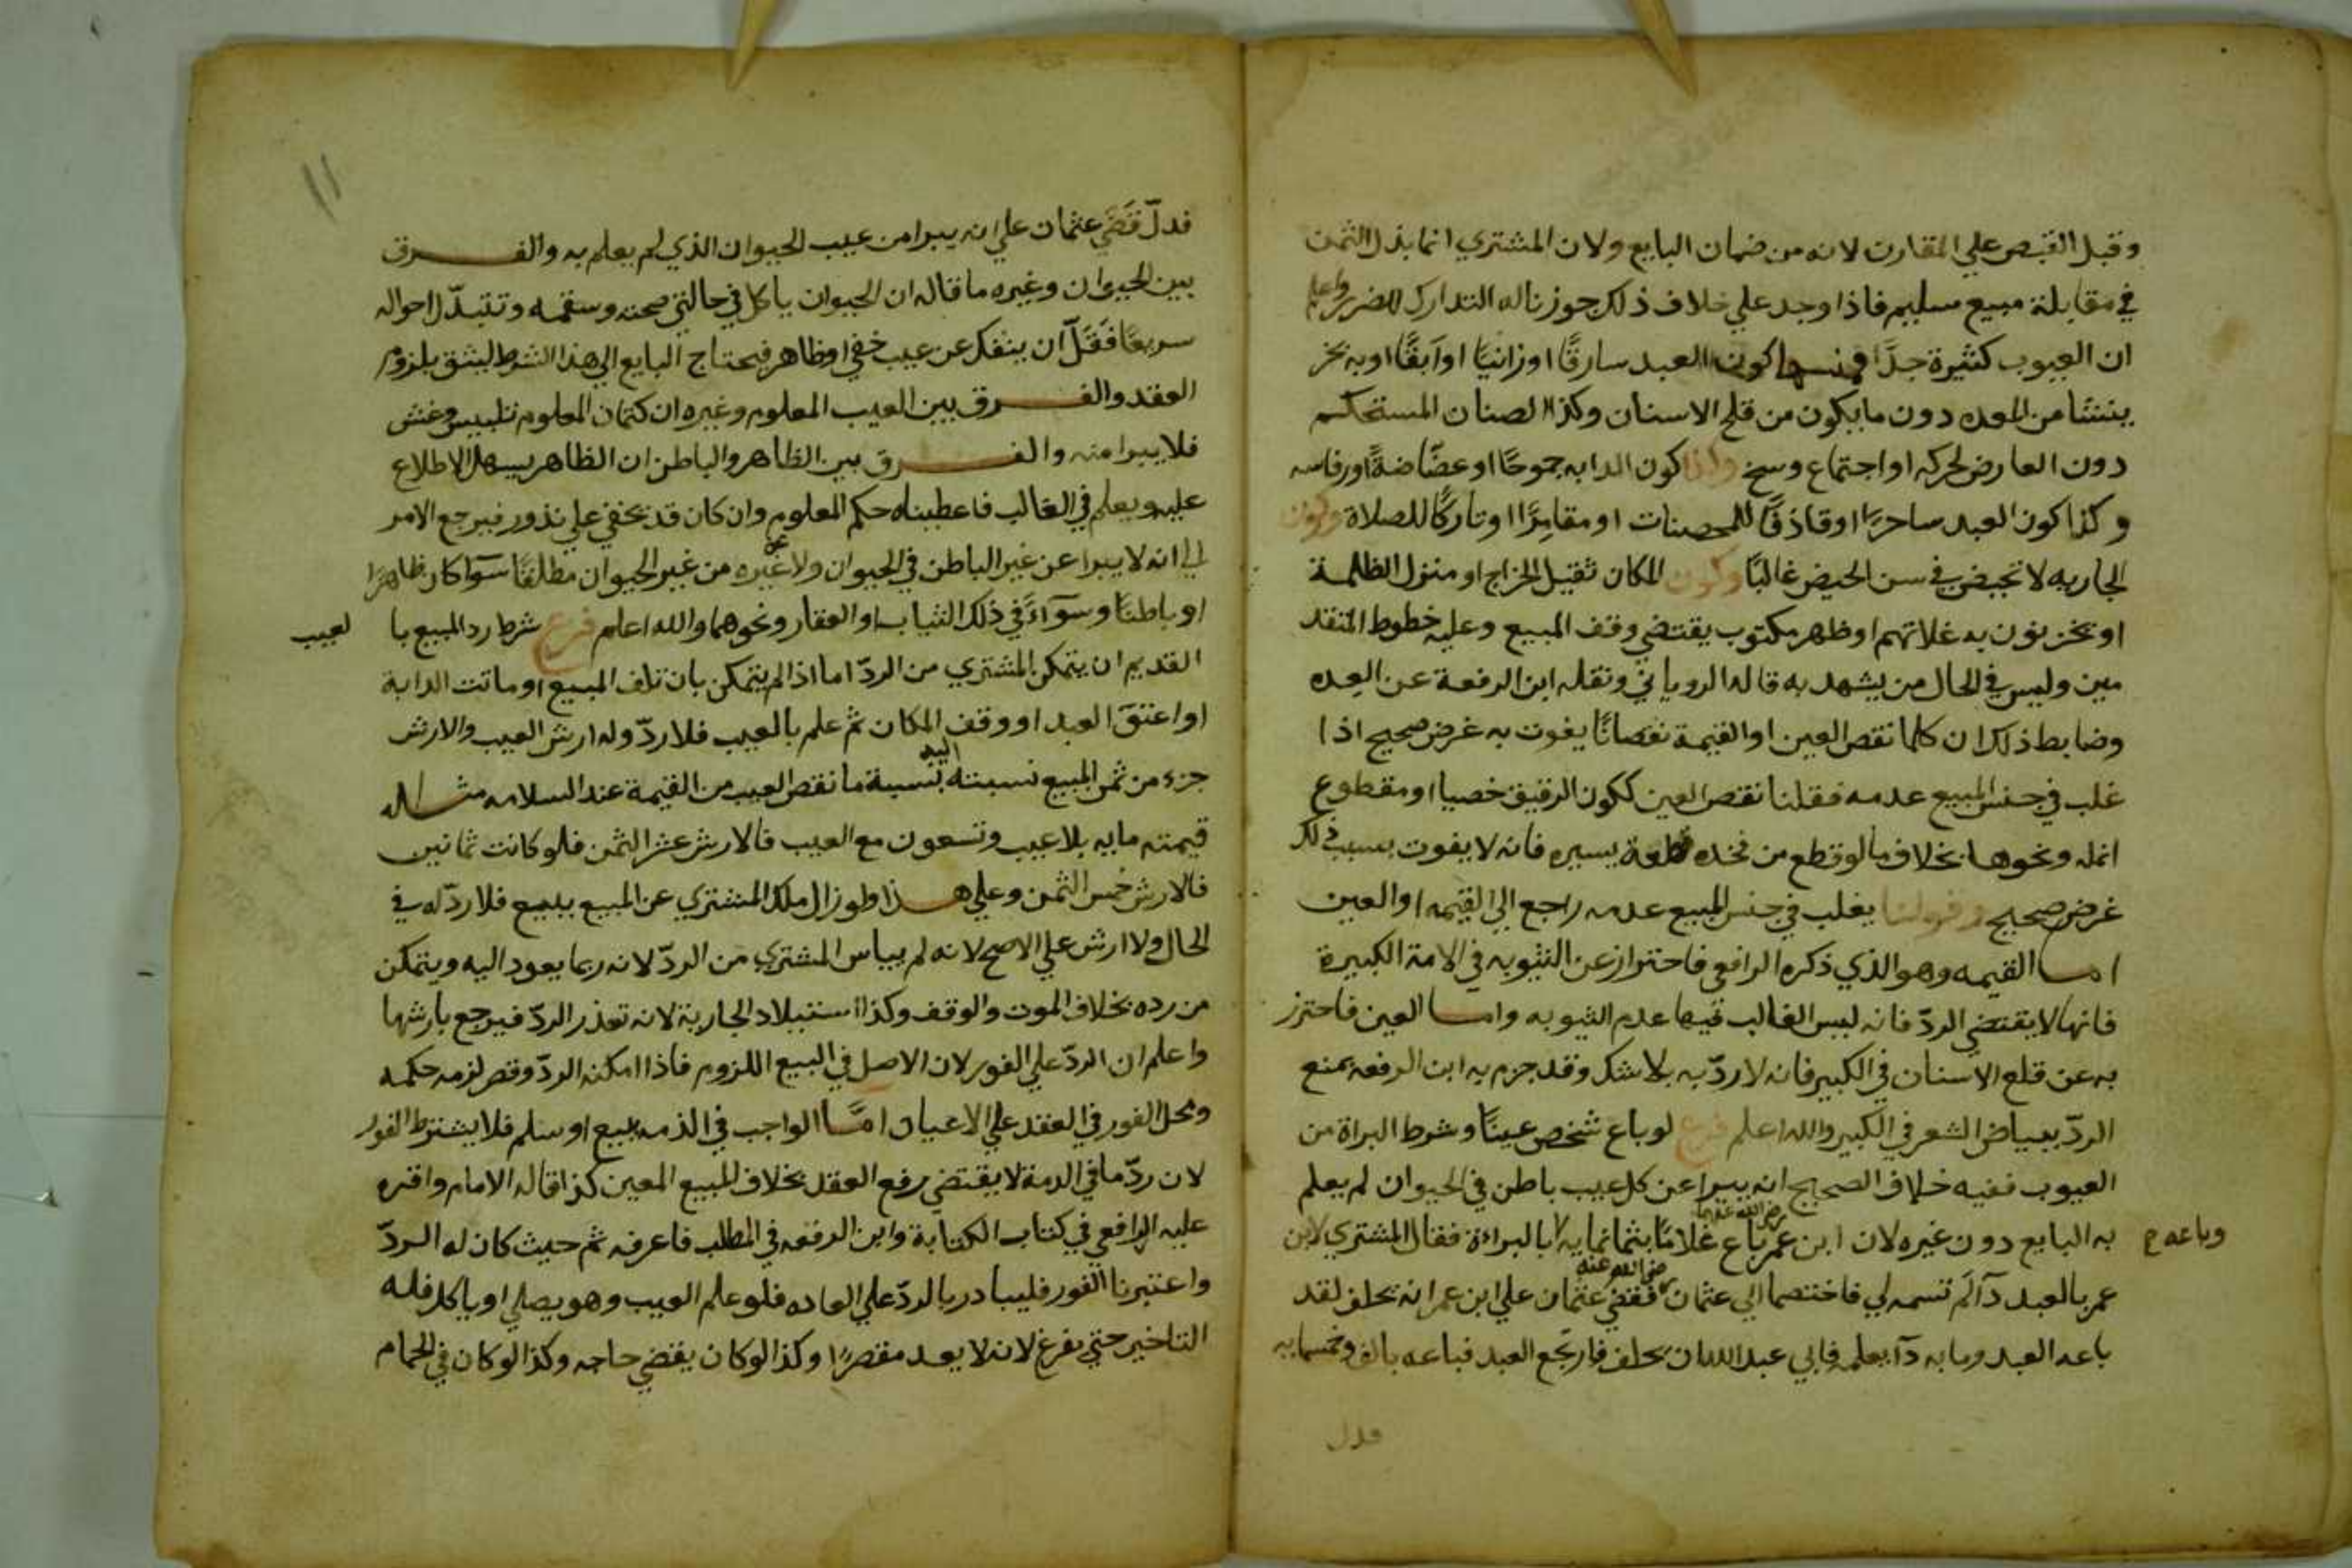 وقبل القبض علي المقارن لانه من ضمان البايع ولان المشتري انما بذل الثمن
في مقابلة مبيع سليم فاذا وجد علي خلاف ذلك جوزنا له التدارك للضرر واعلم
ان العيوب كثيرة جدًّا فمنسها كون العبد سارقًا اوزانيًا اوآبقًا اوبه بخر
ينشئا من المعده دون مايكون من قلح الاسنان وكذا الصنان المستحكم
دون العارض لحركه او اجتماع وسخ وكذا كون الدابه جموحًا اوعضّاضةً اورفاسه
وكذا كون العبد ساحرًا اوقاذفًا للمحصنات اومقامرًا اوتاركًا للصلاة وكون
الجاريه لا تحيض في سن الحيض غالبًا وكون المكان ثقيل الخراج اومنزل الظلمة
اويخزنون به غلاتهم اوظهر مكتوب يقتضي وقف المبيع وعليه خطوط المتقد
مين وليس في الحال من يشهد به قاله الروياني ونقله ابن الرفعة عن العده
وضابط ذلك ان كلما نقص العين او القيمة نقصانًا يفوت به غرض صحيح اذا
غلب في جنس المبيع عدمه فقلنا نقص العين ككون الرقيق خصيا اومقطوع
انمله ونحوها بخلاف مالوقطع من فخذه قطعة يسيره فانه لا يفوت بسبب ذلك
غرض صحيح وقولنا يغلب في جنس المبيع عدمه راجع الي القيمه او العين
اما القيمه وهو الذي ذكره الرافعي فاحتراز عن الثيوبه في الامة الكبيرة
فانها لا يقتضي الردّ فانه ليس الغالب فيها عدم الثيوبه واما العين فاحترز
به عن قلع الاسنان في الكبير فانه لا ردّ به بلا شك وقد جزم به ابن الرفعه بمنع
الردّ ببياض الشعر في الكبير والله اعلم فرع لوباع شخص عينًا وشرط البراة من
العيوب ففيه خلاف الصحيح انه يبرا عن كل عيب باطن في الحيوان لم يعلم
به البايع دون غيره لان ابن عمر رضي الله عنهما باع غلامًا بثمانمايه بالبراءة فقال المشتري لابن
وباعه ح
عمر بالعبد دآلم تسمه لي فاختصما الي عثمان رضي الله عنه فقضي عثمان علي ابن عمر انه يحلف لقد
باعه العبد ومابه دآ يعلمه فابي عبد الله ان يحلف فارتجع العبد فباعه بالف وخمسمايه
فدل
١١
فدلّ قَضَي عثمان علي انه يبرا من عيب الحيوان الذي لم يعلم به والفرق
بين الحيوان وغيره ماقاله ان الحيوان ياكل في حالتي صحته وسقمه وتتبدّل احواله
سريعًا فَقَلّ ان ينفك عن عيب خفي اوظاهر فيحتاج البايع الي هذا الشرط ليثق بلزوم
العقد والفرق بين العيب المعلوم وغيره ان كتمان المعلوم تلبيس وغش
فلا يبرا منه والفرق بين الظاهر والباطن ان الظاهر يسهل الاطلاع
عليه ويعلم في الغالب فاعطيناه حكم المعلوم وان كان قد يخفي علي نذور فيرجع الامر
الي انه لا يبرا عن غير الباطن في الحيوان ولا عن غيره من غير الحيوان مطلقًا سوآ كان ظاهرًا
اوباطنًا وسوآءً في ذلك الثياب والعقار ونحوهما والله اعلم فرع شرط رد المبيع با
لعيب
القديم ان يتمكن المشتري من الردّ اما اذا لم يتمكن بان تلف المبيع اوماتت الدابة
اواعتقَ العبد اووقف المكان ثم علم بالعيب فلا ردّ وله ارش العيب والارش
جزء من ثمن المبيع نسبته اليه نسبة مانقص العيب من القيمة عند السلامه مثاله
قيمته مايه بلا عيب وتسعون مع العيب فالارش عشر الثمن فلو كانت ثمانين
فالارش خمس الثمن وعلي هذا ولو زال ملك المشتري عن المبيع ببيع فلا ردّ له في
الحال ولا ارش علي الاصح لانه لم يياس المشتري من الردّ لانه ربما يعود اليه ويتمكن
من رده بخلاف الموت والوقف وكذا استيلاد الجارية لانه تعذر الردّ فيرجع بارشها
واعلم ان الردّ علي الفور لان الاصل في البيع اللزوم فاذا امكنه الردّ وقصر لزمه حكمه
ومحل الفور في العقد علي الاعيان امّا الواجب في الذمه ببيع اوسلم فلا يشترط الفور
لان ردّ مافي الذمة لا يقتضي رفع العقد بخلاف المبيع المعين كذا قاله الامام واقره
عليه الرافعي في كتاب الكتابة وابن الرفعه في المطلب فاعرفه ثم حيث كان له الردّ
واعتبرنا الفور فليبادر بالردّ علي العاده فلو علم العيب وهو يصلي اوياكل فله
التاخير حتي يفرغ لانه لا يعد مقصرًا وكذا لوكان يقضي حاجه وكذا لوكان في الحمام